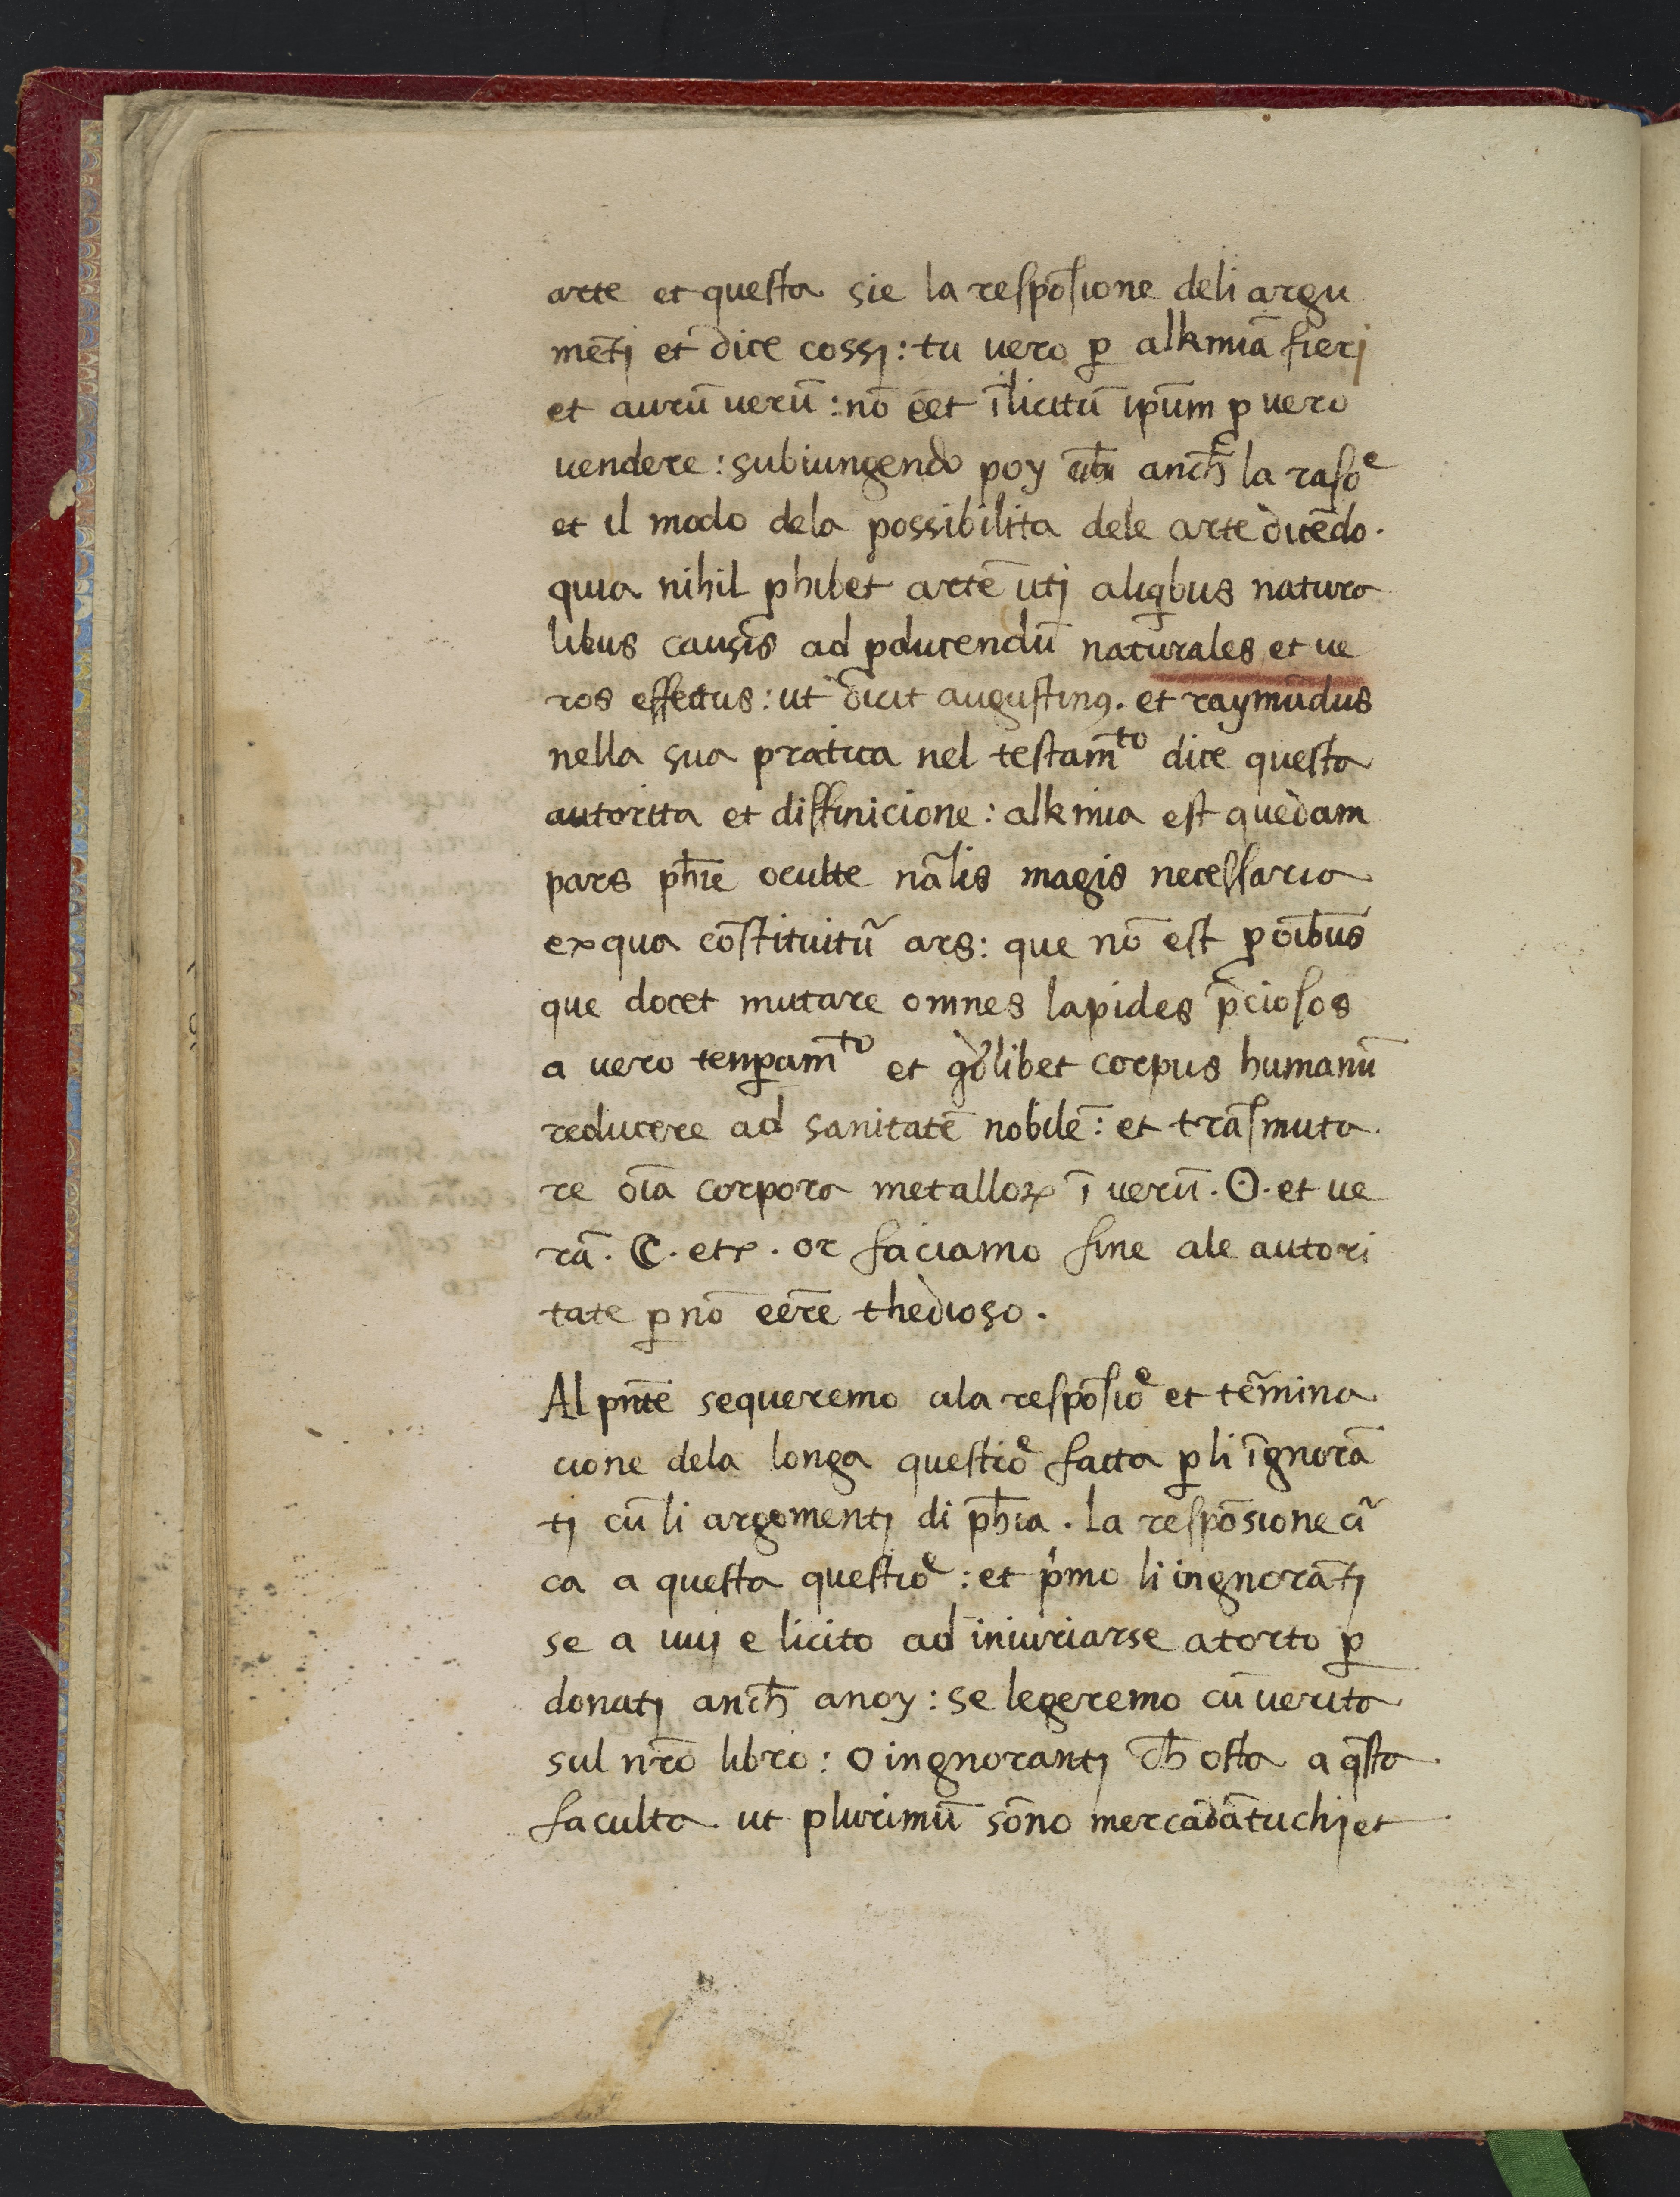 arte et questa sie la respōsione deli argu
mēti et dice cossj: tu vero ꝑ alkimiā fierj
et aurū uerū: nō eēt īlicitū ip̄um ꝓ uero
uendere: subiungendo poy anch̄ la rasōe
et il modo dela possibilita dele arte dicēdo.
quia nihil ꝓhibet artē utj aliqͥbus natura
libus causis ad ꝓducendū naturales et ue
ros effectus: ut dicit augustinꝰ. et raymūdus
nella sua pratica nel testamto dice questa
autorita et diffinicione: alkimia est quedam
pars ph̄ie oculte nālis magis necessaria
ex qua cōstituitur̄ ars: que nō est ꝑ oībus
que docet mutare omnes lapides p̄ciosos
a vero temꝑamto et qdlibet corpus humanū
reducere ad sanitatē nobilē: et trāsmuta
re oīa corpora metalloꝝ ī uerū. ☉. et ue
rā. ☾. etc. or faciamo fine ale autori
tate ꝑ nō eēre thedioso.
Al pn̄te sequeremo ala respōsiōe et tērmina
cione dela longa questiōe facta ꝑ li īgnorā
tj cū li argomentj di ph̄ia. La respōsione ci᷒
ca a questa questiōe: et pͥmo li ingnorātj
se a uuj e licito ad iniuriarse atorto ꝑ
donatj anch̄ anoy: se legeremo cū uerita
sul nr̄o libro: O ingnorantj ch̄ osta a qsta
faculta ut plurimū sōno mercadātuchj et